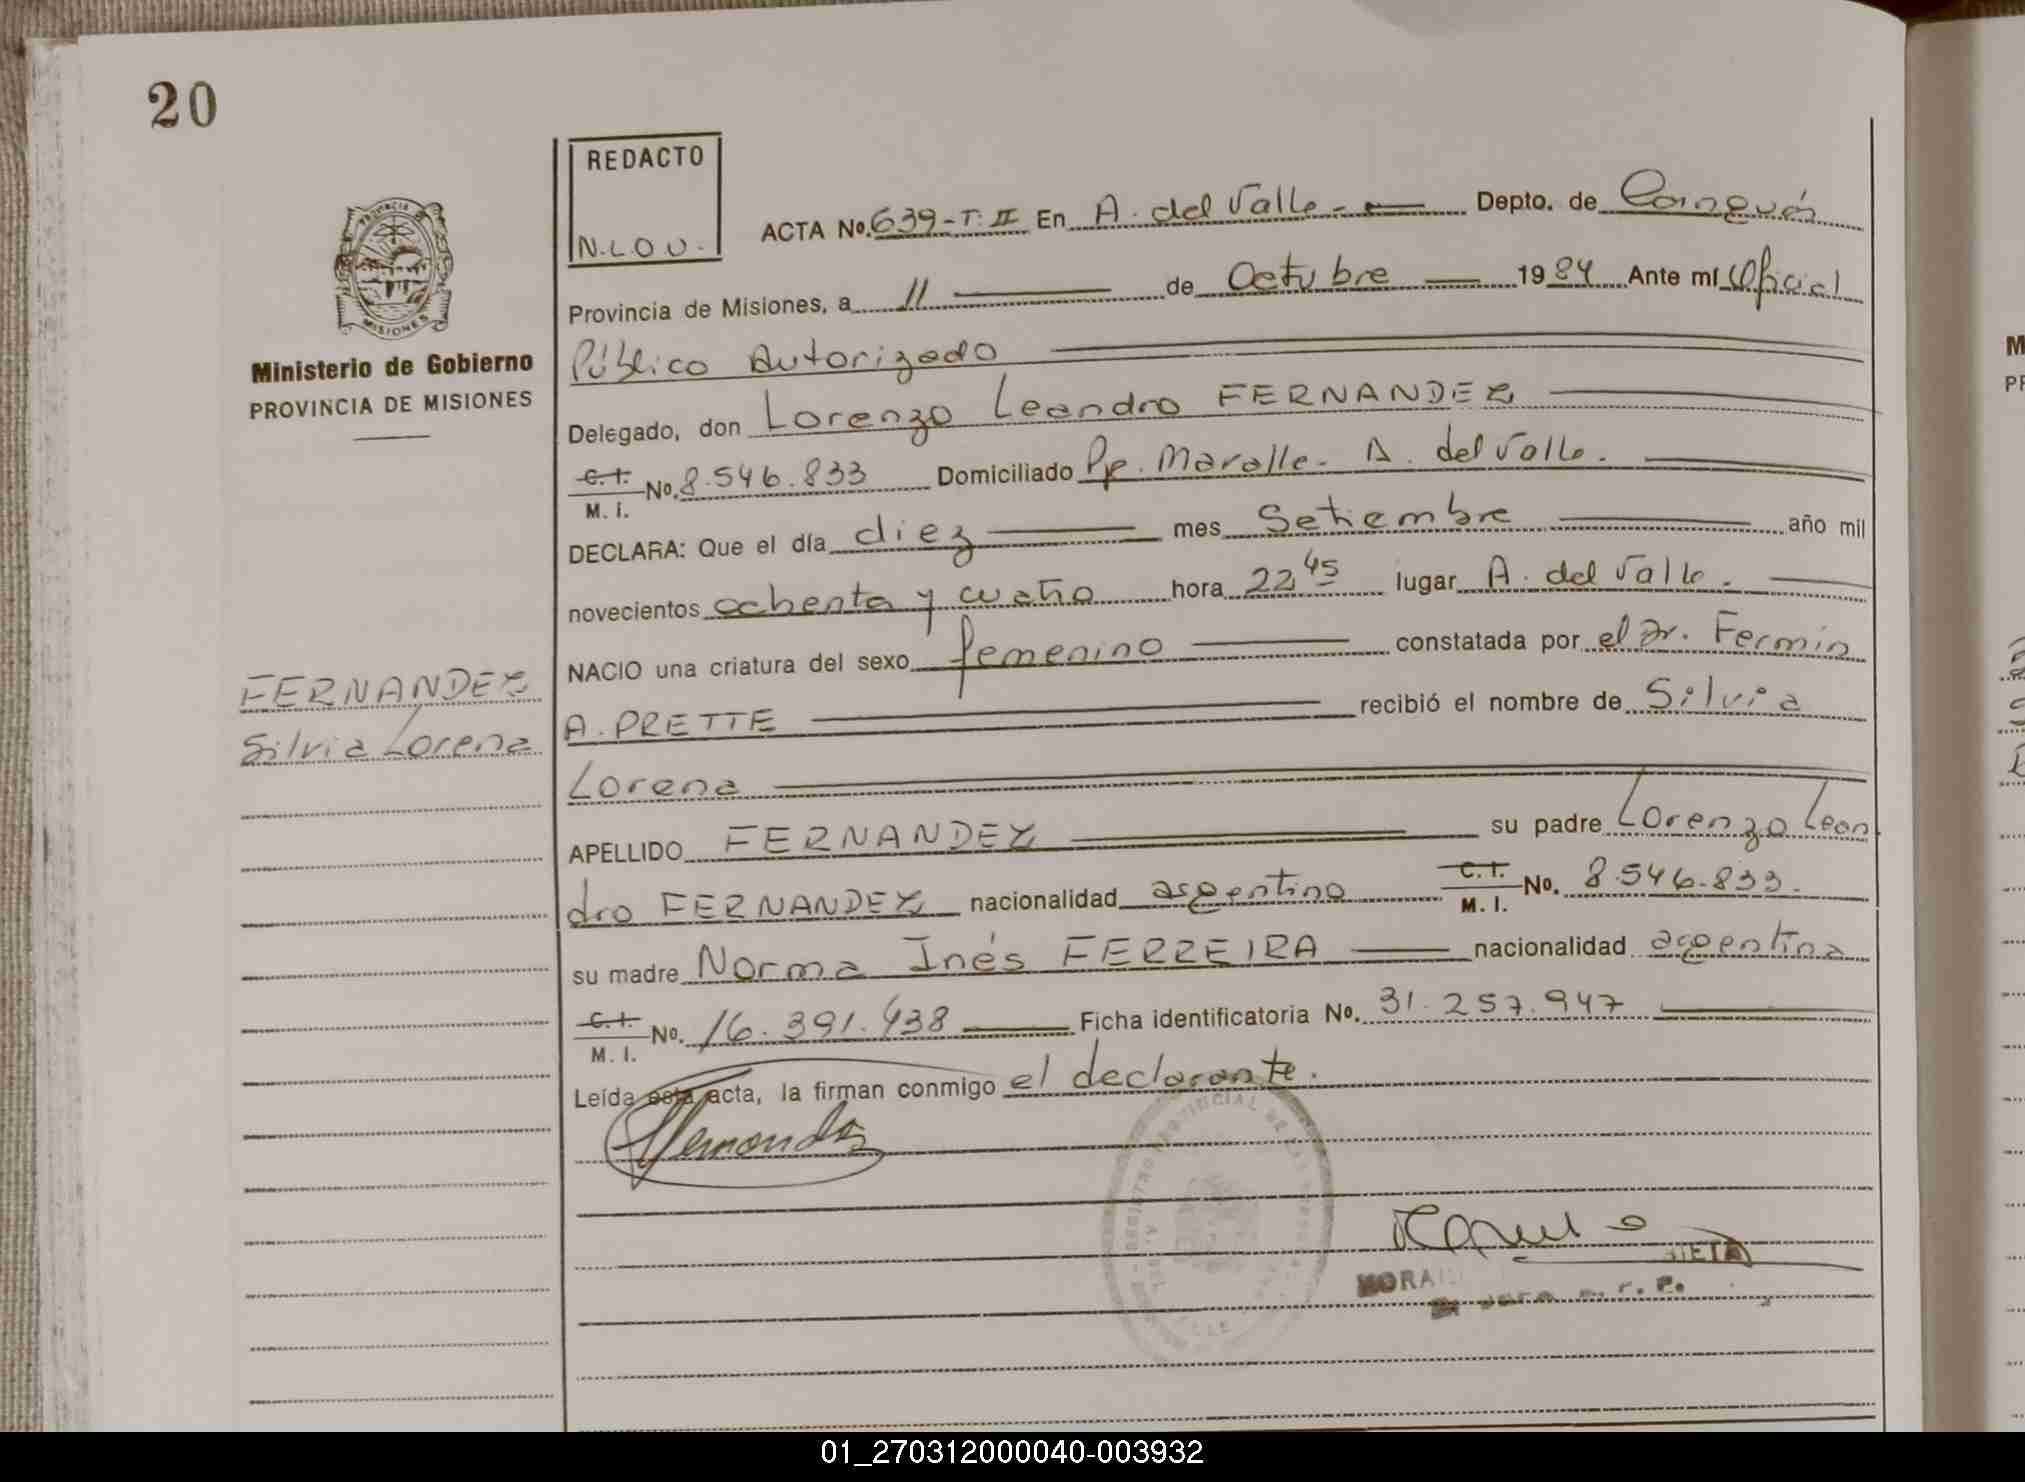 20
REDACTO
N.L.O.U.
PROVINCIA
MISIONES
Ministerio de Gobierno
PROVINCIA DE MISIONES
FERNANDEZ
Silvia Lorena
ACTA No. 639-T. II En A. del Valle Depto. de Cainguás
Provincia de Misiones, a 11 de Octubre 1984 Ante mí Oficial
Público Autorizado
Delegado, don Lorenzo Leandro FERNANDEZ
C. I. M. I. No. 8.546.833 Domiciliado Pje. Maralle - A. del Valle.
DECLARA: Que el día diez mes Setiembre año mil
novecientos ochenta y cuatro hora 22 45 lugar A. del Valle
NACIO una criatura del sexo femenino constatada por el Dr. Fermín
A. PRETTE recibió el nombre de Silvia
Lorena
APELLIDO FERNANDEZ su padre Lorenzo Lean
dro FERNANDEZ nacionalidad argentino C. I. M. I. No. 8.546.833.
su madre Norma Inés FERREIRA nacionalidad argentina
C. I. M. I. No. 16.391.438 Ficha identificatoria No. 31.257.947
Leída esta acta, la firman conmigo el declarante.
Fernandez
01_270312000040-003932